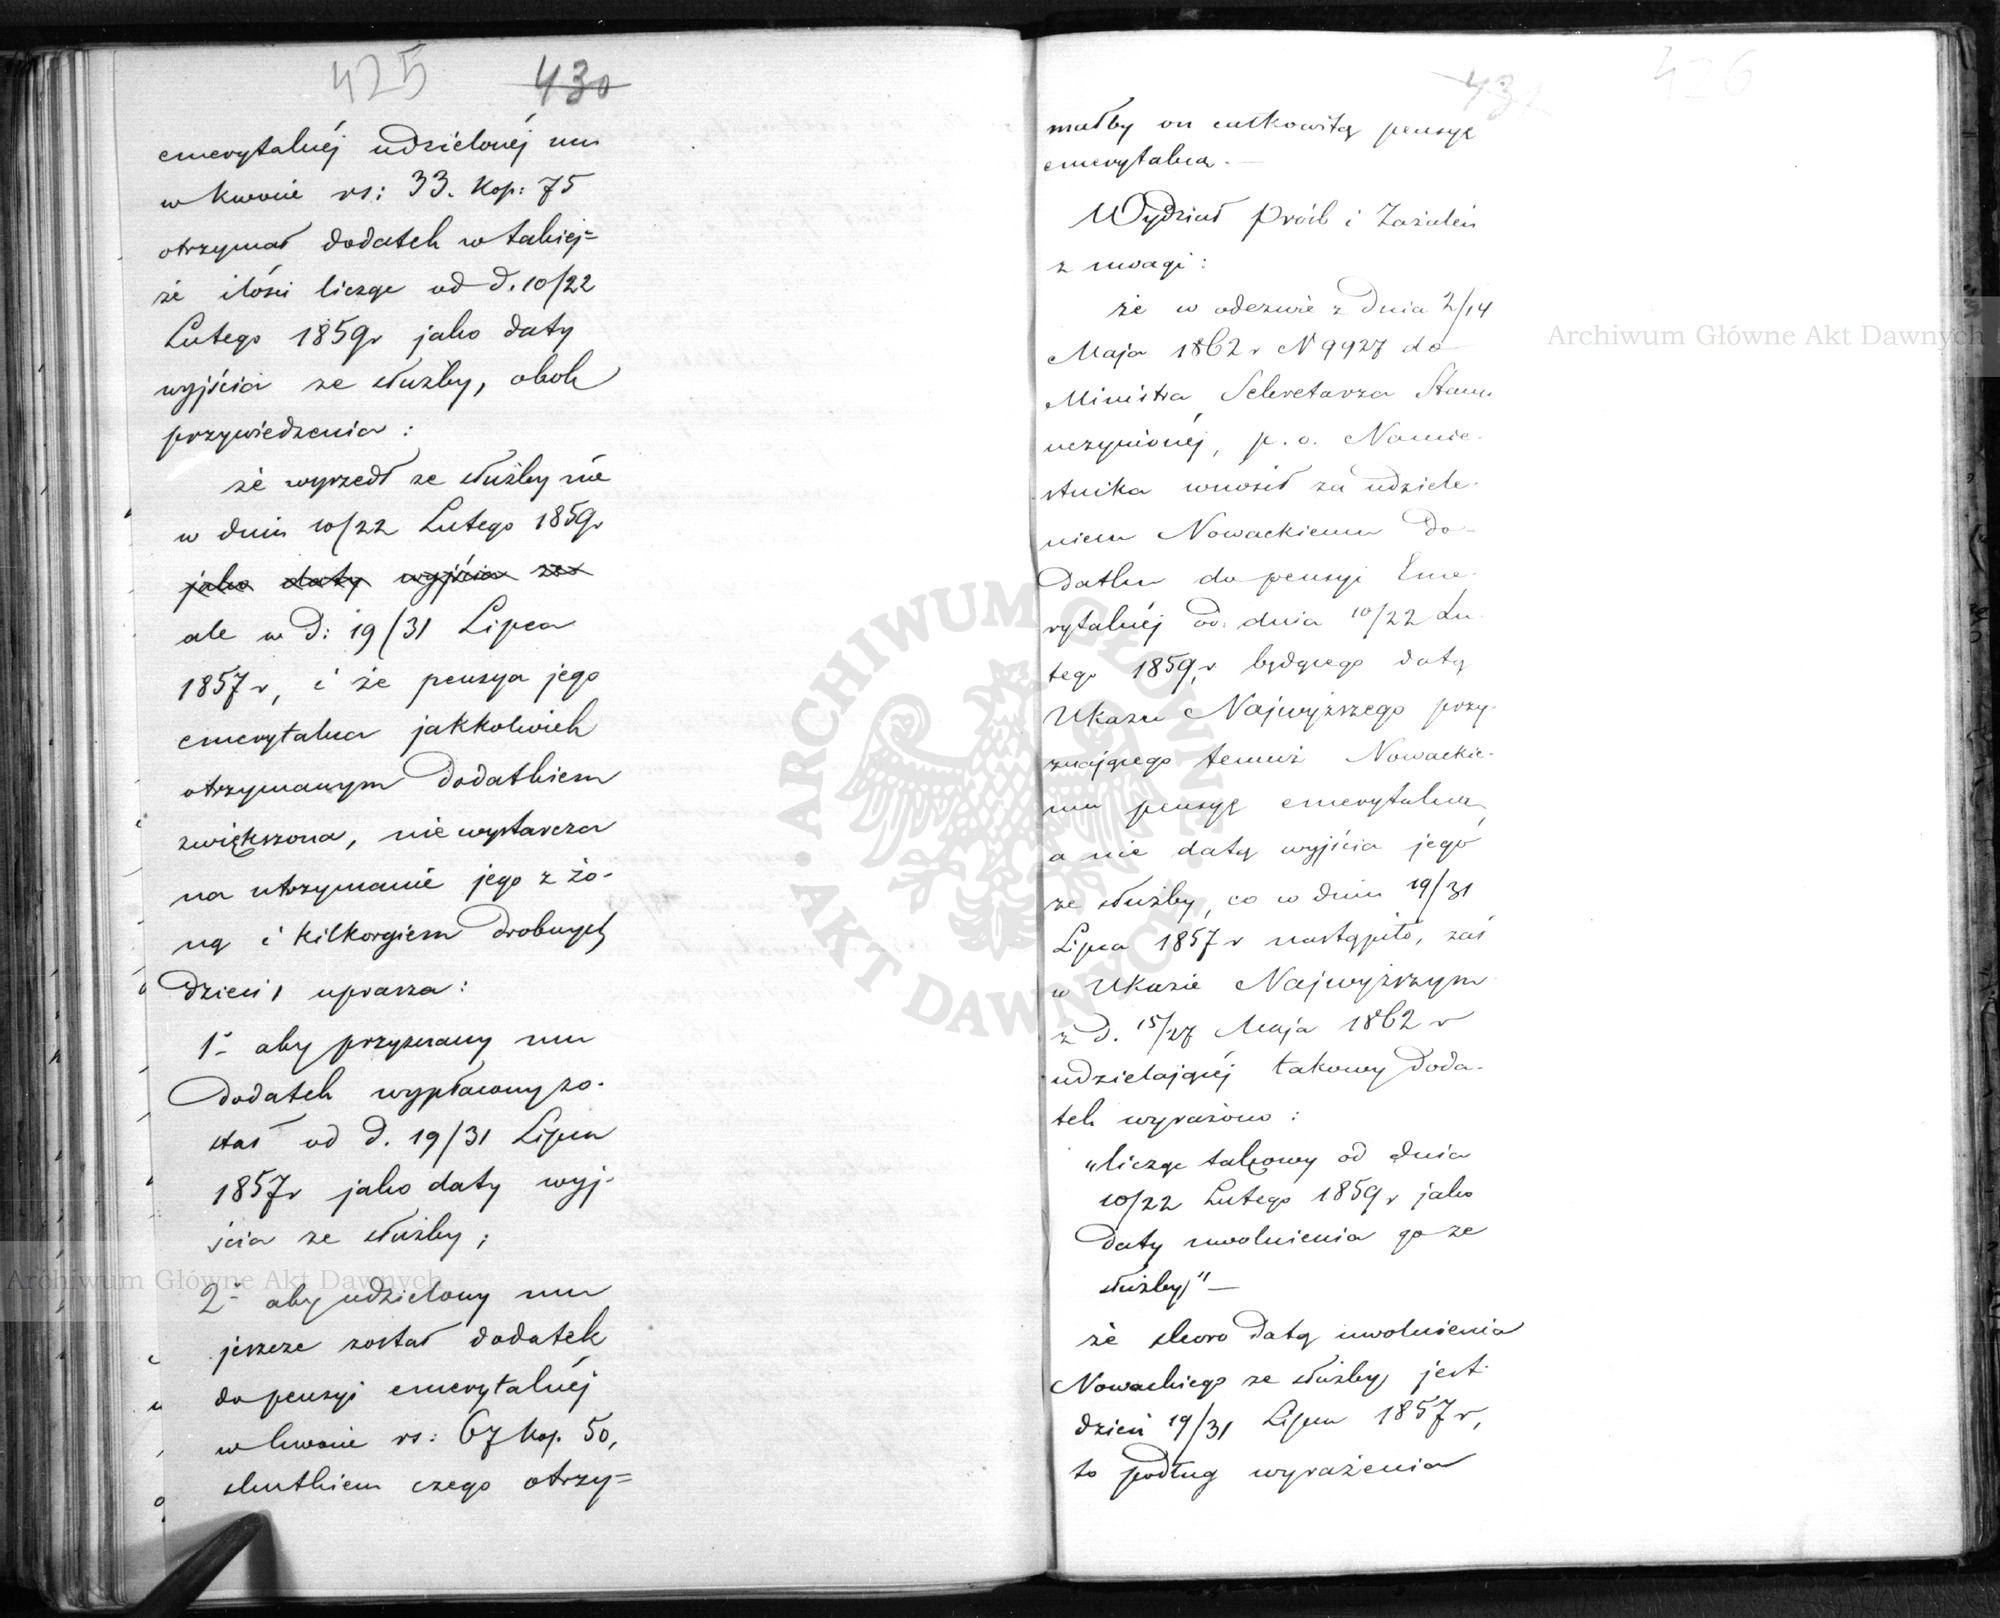 425 430
emerytalnéj udzielonéj mu
w kwocie rs: 33. kop: 75
otrzymał dodatek w takiej=
że ilości licząc od d. 10/22
Lutego 1859r jako daty
wyjścia ze służby, obok
przywiedzenia:
że wyszedł ze służby nie
w dniu 10/22 Lutego 1859r
jako daty wyjścia ze
ale w d: 19/31 Lipca
1857 r, i że pensya jego
emerytalna jakkolwiek
otrzymanym dodatkiem
zwiększona, nie wystarcza
na utrzymanie jego z żo-
ną i kilkorgiem drobnych
dzieci, uprasza:
1- aby przyznany mu
dodatek wypłacony zo-
stał od d. 19/31 Lipca
1857r jako daty wyj-
ścia ze służby;
2- aby udzielony mu
jeszcze został dodatek
do pensyi emerytalnéj
w kwocie rs: 67 kop. 50,
skutkiem czego otrzy=
431 426
małby on całkowitą pensyę
emerytalną. —
Wydział Próśb i Zażaleń
z uwagi:
że w odezwie z dnia 2/14
Maja 1862 r N 9927 do
Ministra Sekretarza Stanu
uczynionéj, p. o. Namie-
stnika wnosił za udziele-
niem Nowackiemu do-
datku do pensyi Eme-
rytalnéj od dnia 10/22 Lu-
tego 1859 r będącego datą
Ukazu Najwyższego przy-
znającego temuż Nowackie-
mu pensyę emerytalną,
a nie datą wyjścia jego
ze służby, co w dniu 19/31
Lipca 1857 r nastąpiło, zaś
w Ukazie Najwyższym
z d. 15/27 Maja 1862 r
udzielającéj takowy doda-
tek wyrażono:
"licząc takowy od dnia
10/22 Lutego 1859 r jako
daty uwolnienia go ze
służby" —
że skoro datą uwolnienia
Nowackiego ze służby jest
dzień 19/31 Lipca 1857 r,
to podług wyrażenia
Archiwum Główne Akt Dawnych
Archiwum Główne Akt Dawnych
ARCHIWUM GŁÓWNE • AKT DAWNYCH •